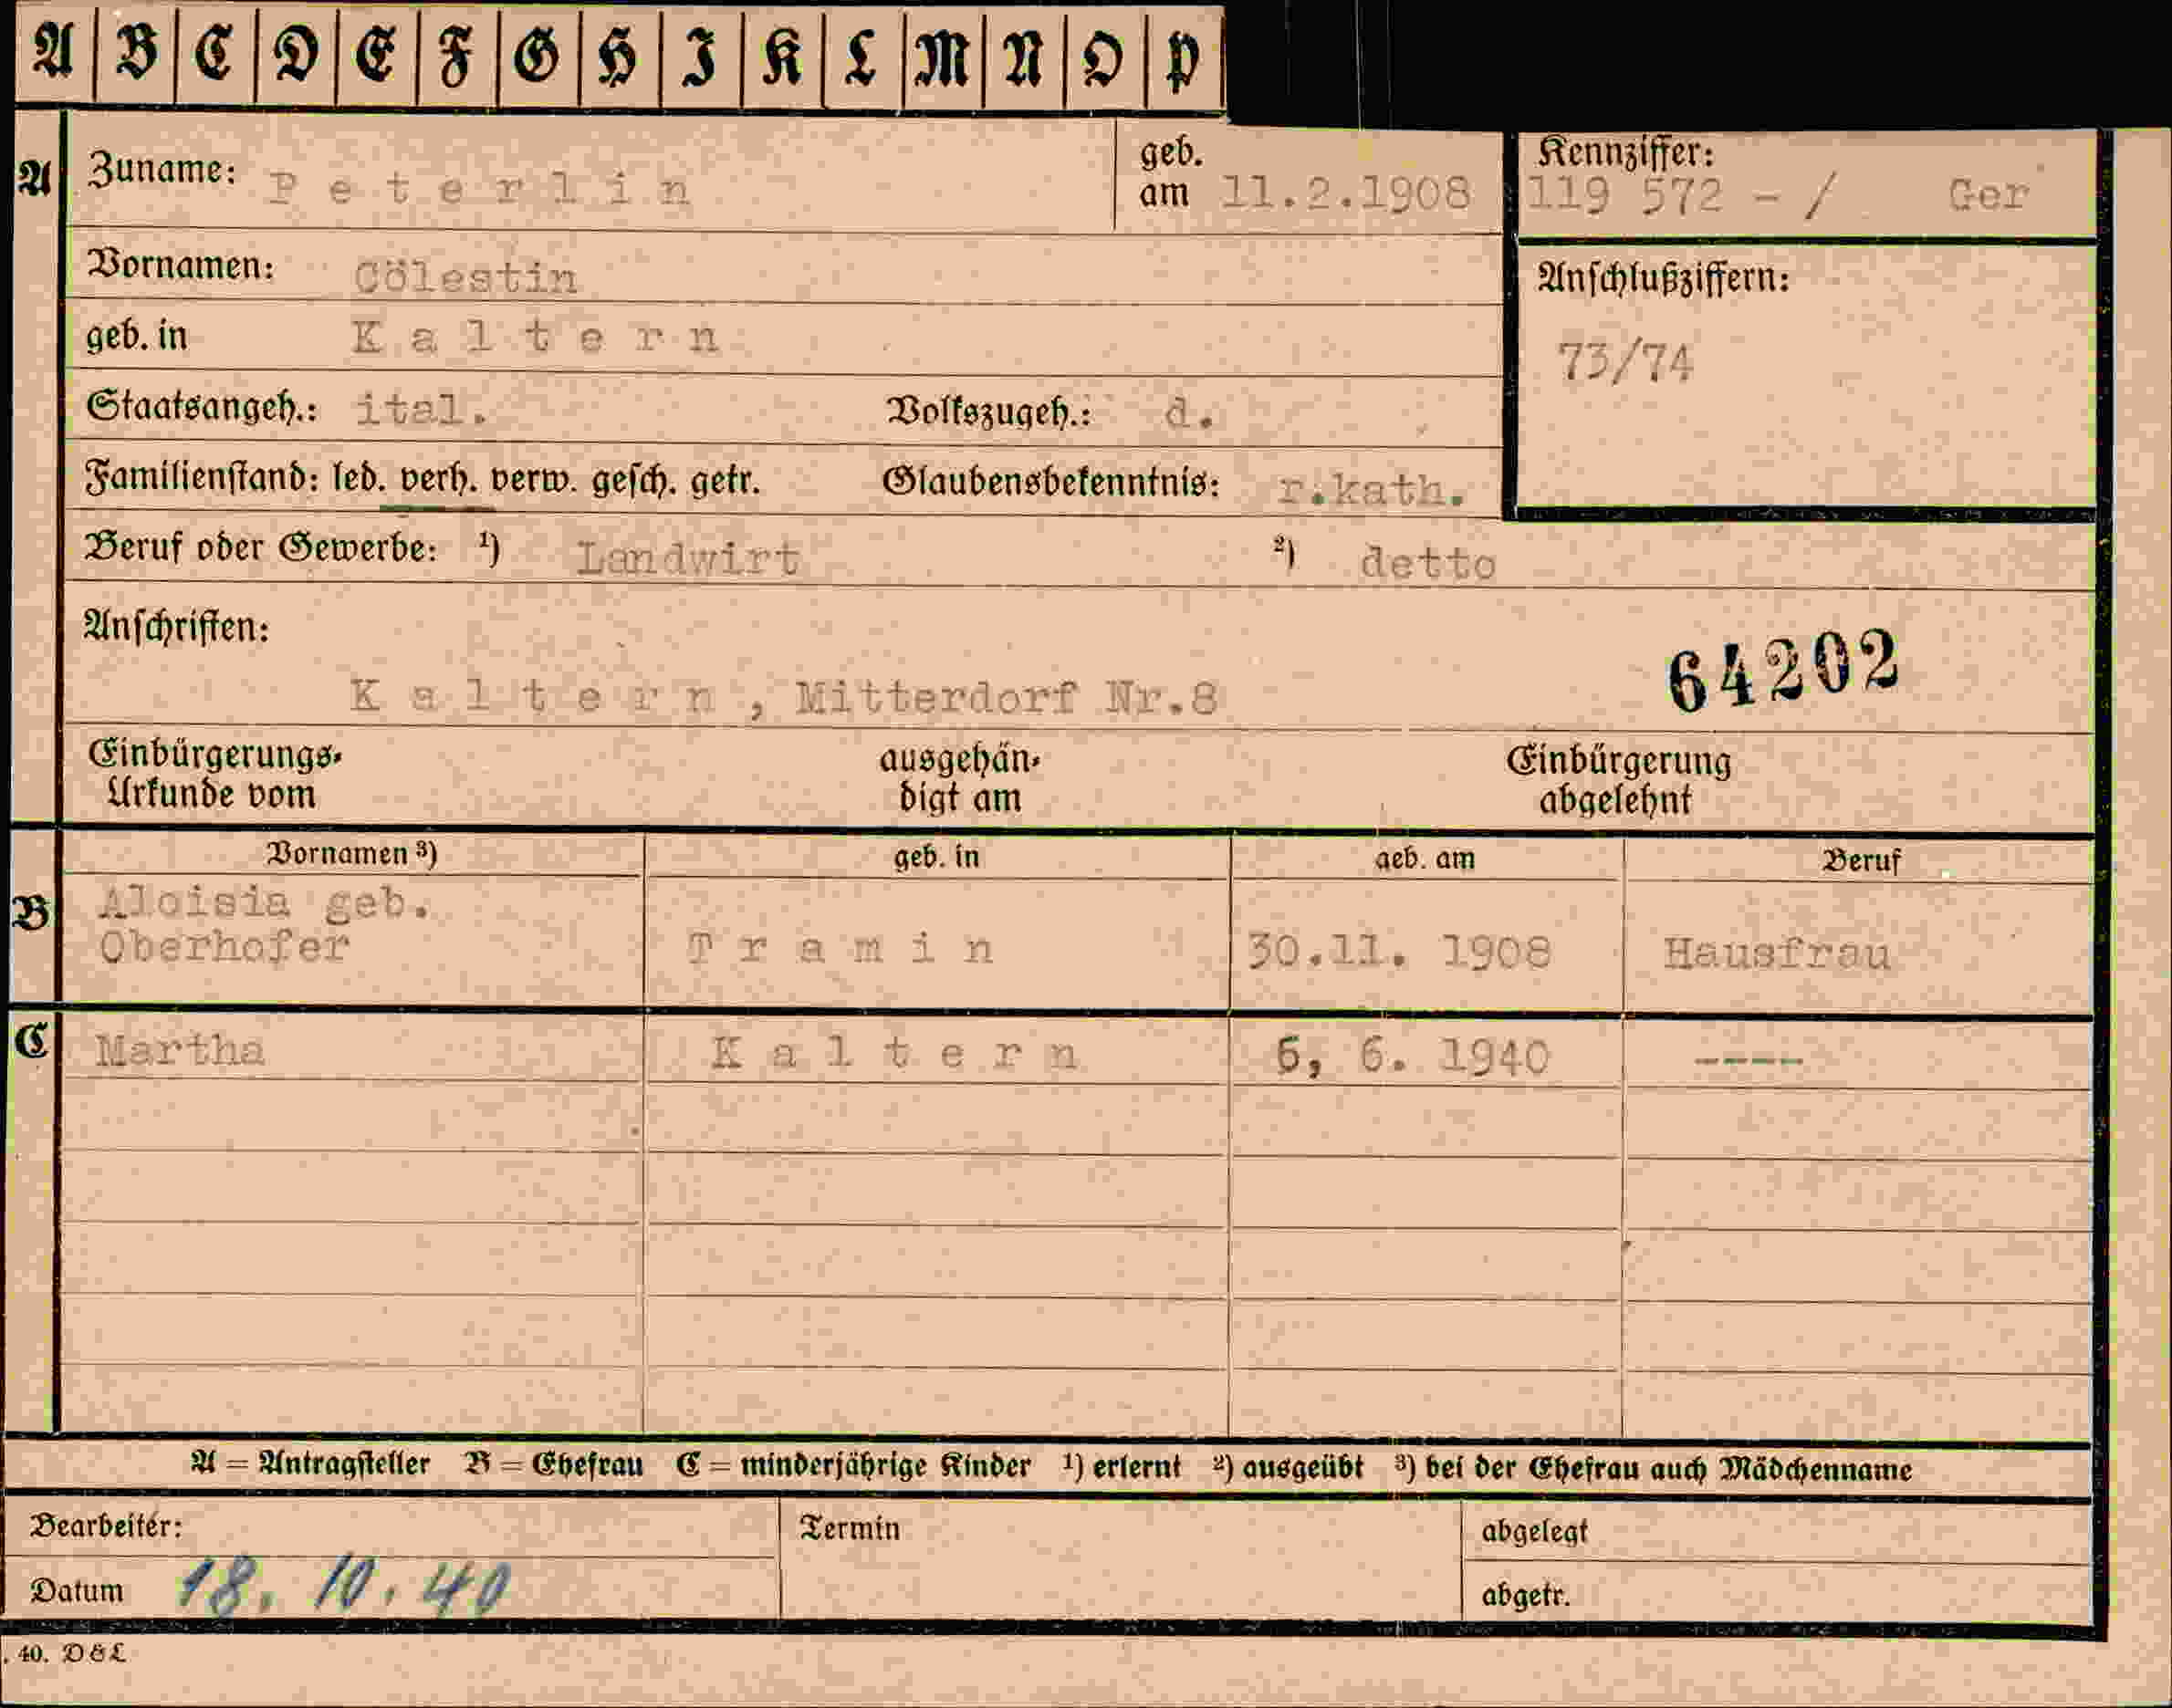 A B C D E F G H I K L M N O P
A Zuname: Peterlin geb. am 11.2.1908 Kennziffer: 119 572 - / Ger
Vornamen: Cölestin Anschlußziffern:
geb. in Kaltern 73/74
Staatsangeh.: ital. Volkszugeh.: d.
Familienstand: led. verh. verw. gesch. getr. Glaubensbekenntnis: r.kath.
Beruf oder Gewerbe: ¹) Landwirt ²) detto
Anschriften: 64202
Kaltern, Mitterdorf Nr.8
Einbürgerungs- ausgehän- Einbürgerung
Urkunde vom digt am abgelehnt
Vornamen ³) geb. in geb. am Beruf
B Aloisia geb.
Oberhofer Tramin 30.11. 1908 Hausfrau
C Martha Kaltern 6, 6. 1940 ----
A = Antragsteller B = Ehefrau C = minderjährige Kinder ¹) erlernt ²) ausgeübt ³) bei der Ehefrau auch Mädchenname
Bearbeiter: Termin abgelegt
Datum 18. 10. 40 abgetr.
. 40. DEL